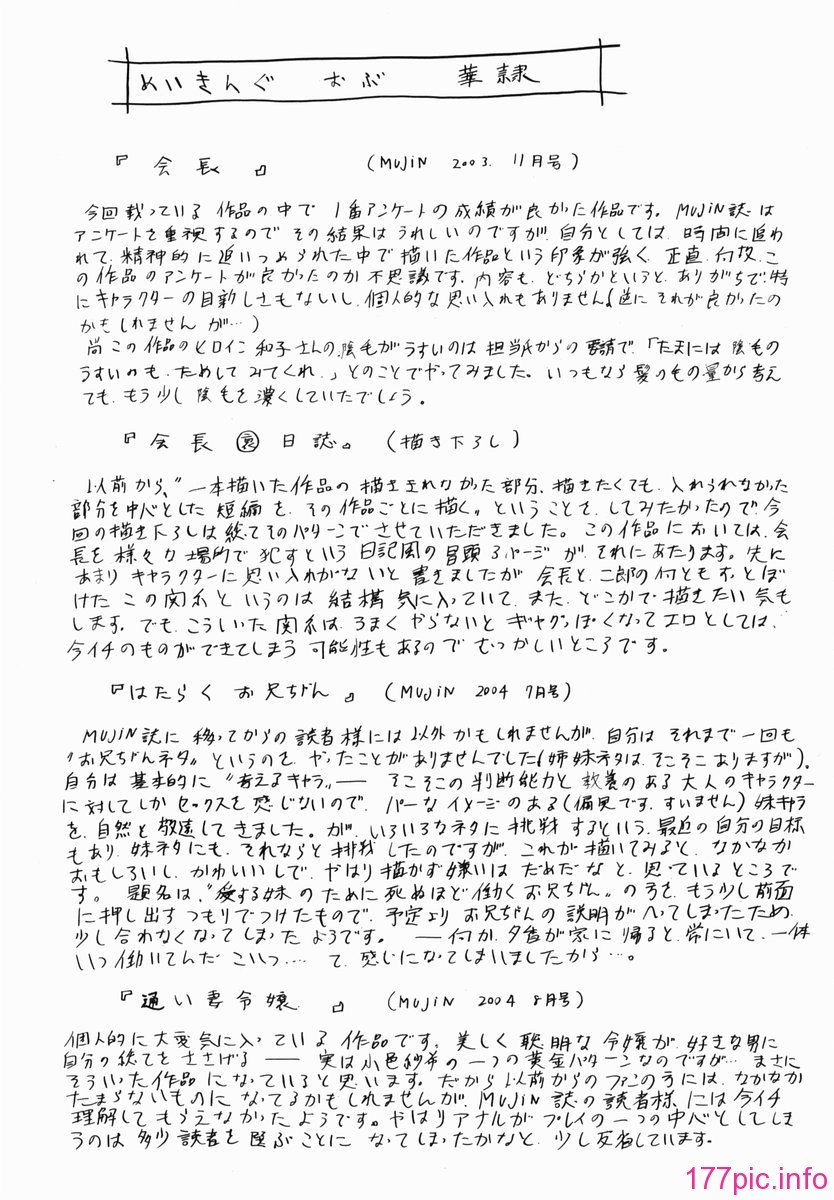 めいきんぐ おぶ 華隷
『会長』 (MUJIN 2003. 11月号)
今回載っている作品の中で 1番アンケートの成績が良かった作品です。MUJIN誌は
アンケートを重視するので その結果はうれしいのですが、自分としては、時間に追わ
れて、精神的に追いつめられた中で描いた作品という印象が強く、正直、何故、こ
の作品のアンケートが良かったのか不思議です。内容も、どちらかというと、ありがちで、特
にキャラクターの目新しさもないし、個人的な思い入れもありません(逆に それが良かったの
かもしれませんが…)
尚この作品のヒロイン 和子さんの、陰毛がうすいのは 担当氏からの要請で、「たまには 陰毛の
うすいのも、ためして みてくれ。」とのことでやってみました。いつもなら髪の毛の量から考え
ても、もう少し 陰毛を濃くしていたでしょう。
『会長㊙日誌。(描き下ろし)
以前から、〝一本描いた作品の 描ききれなかった部分、描きたくても、入れられなかった
部分を中心とした 短編を、その作品ごとに描く〟ということを、してみたかったので、今
回の描き下ろしは総てそのパターンでさせていただきました。この作品においては、会
長を様々な場所で犯すという 日記風の冒頭3ページが、それにあたります。先に
あまり キャラクターに思い入れがないと 書きましたが 会長と、二郎の何とも、すっとぼ
けた この関係と いうのは 結構 気に入っていて、また、どこかで、描きたい気も
します。でも、こういった 関係は、うまく やらないと ギャグっぽくなって エロとしては、
今イチのものができてしまう 可能性もあるので むつかしいところです。
『はたらく お兄ちゃん』 (MUJIN 2004 7月号)
MUJIN誌に 移ってからの読者様には以外かもしれませんが、自分は それまで一回も
〝お兄ちゃんネタ〟というのを、やったことがありませんでした(姉妹ネタは、そこそこありますが)。
自分は 基本的に 〝考えるキャラ〟── そこそこの判断能力と 教養のある大人のキャラクター
に対してしか セックスを感じないので、パーなイメージのある(偏見です、すいません)妹キャラ
を、自然と敬遠してきました。が、いろいろなネタに 挑戦するという、最近の自分の目標
もあり、妹ネタにも、それならと 挑戦したのですが、これが描いてみると、なかなか
おもしろいし、かわいいしで、やはり描かず嫌いはだめだなと、思っているところで
す。 題名は、〝愛する妹のために死ぬほど働くお兄ちゃん〟の方を、もう少し前面
に押し出すつもりでつけたもので、予定より お兄ちゃんの説明がへってしまったため、
少し合わなくなってしまったようです。 ──何か、夕香が家に帰ると、常にいて、一体
いつ働いてんだ こいつ… て、感じになってしまいましたから…。
『通い妻令嬢』 (MUJIN 2004 8月号)
個人的に大変気に入っている作品です。美しく聡明な令嬢が、好きな男に
自分の総てをささげる ── 実は小邑紗希の一つの黄金パターンなのですが… まさに
そういった作品になっていると思います。だから以前からのファンの方には、なかなか
たまらないものになってるかもしれませんが、MUJIN誌の読者様には今イチ
理解してもらえなかったようです。やはりアナルがプレイの一つの中心としてしま
うのは 多少読者を選ぶことに なってしまったかなと、少し反省しています。
177pic.info